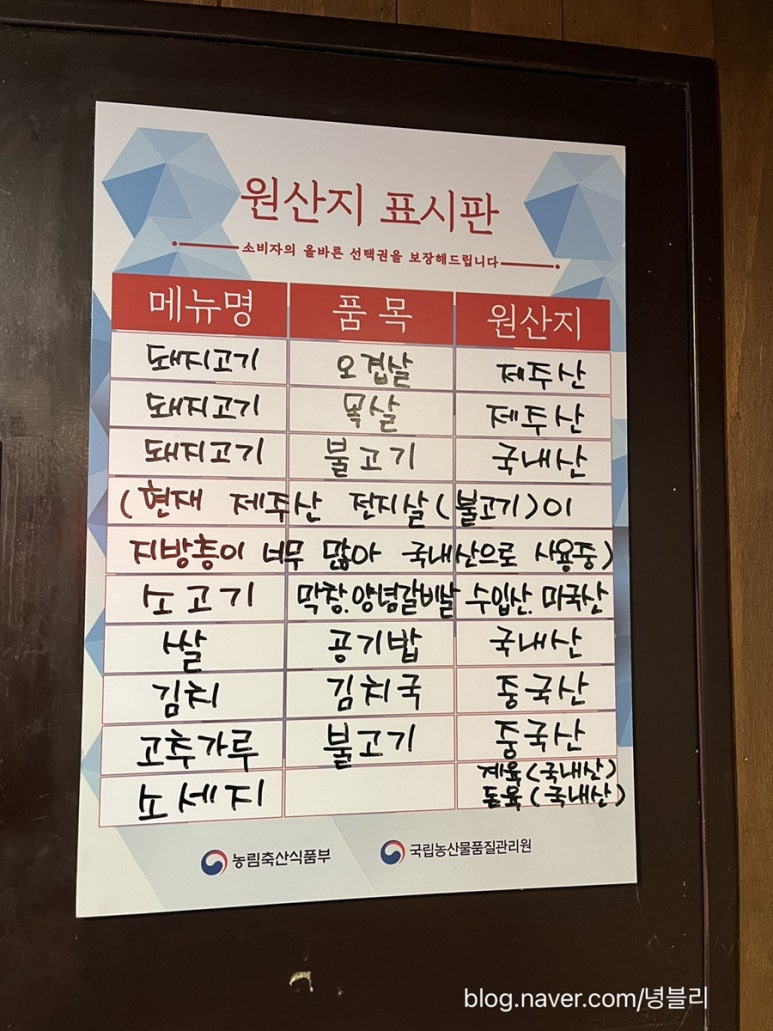 원산지 표시판
소비자의 올바른 선택권을 보장해드립니다
메뉴명 품목 원산지
돼지고기 오겹살 제주산
돼지고기 목살 제주산
돼지고기 불고기 국내산
(현재 제주산 전지살(불고기)이
지방층이 너무 많아 국내산으로 사용중)
소고기 막창.양념갈비살 수입산. 미국산
쌀 공기밥 국내산
김치 김치국 중국산
고추가루 불고기 중국산
소세지 계육(국내산)
돈육(국내산)
농림축산식품부 국립농산물품질관리원
blog.naver.com/녕블리